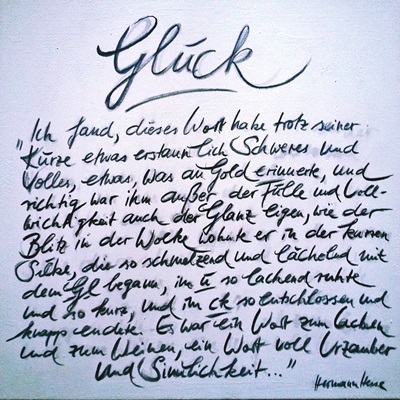 Glück
„Ich fand, dieses Wort habe trotz seiner
Kürze etwas erstaunlich Schweres und
Volles, etwas, was an Gold erinnerte, und
richtig war ihm außer der Fülle und Voll-
wichtigkeit auch der Glanz eigen, wie der
Blitz in der Wolke wohnte er in der kurzen
Silbe, die so schmelzend und lächelnd mit
dem Gl begann, im ü so lachend ruhte
und so kurz, und im ck so entschlossen und
knapp endete. Es war ein Wort zum Lachen
und zum Weinen, ein Wort voll Urzauber
und Sinnlichkeit..."
Hermann Hesse